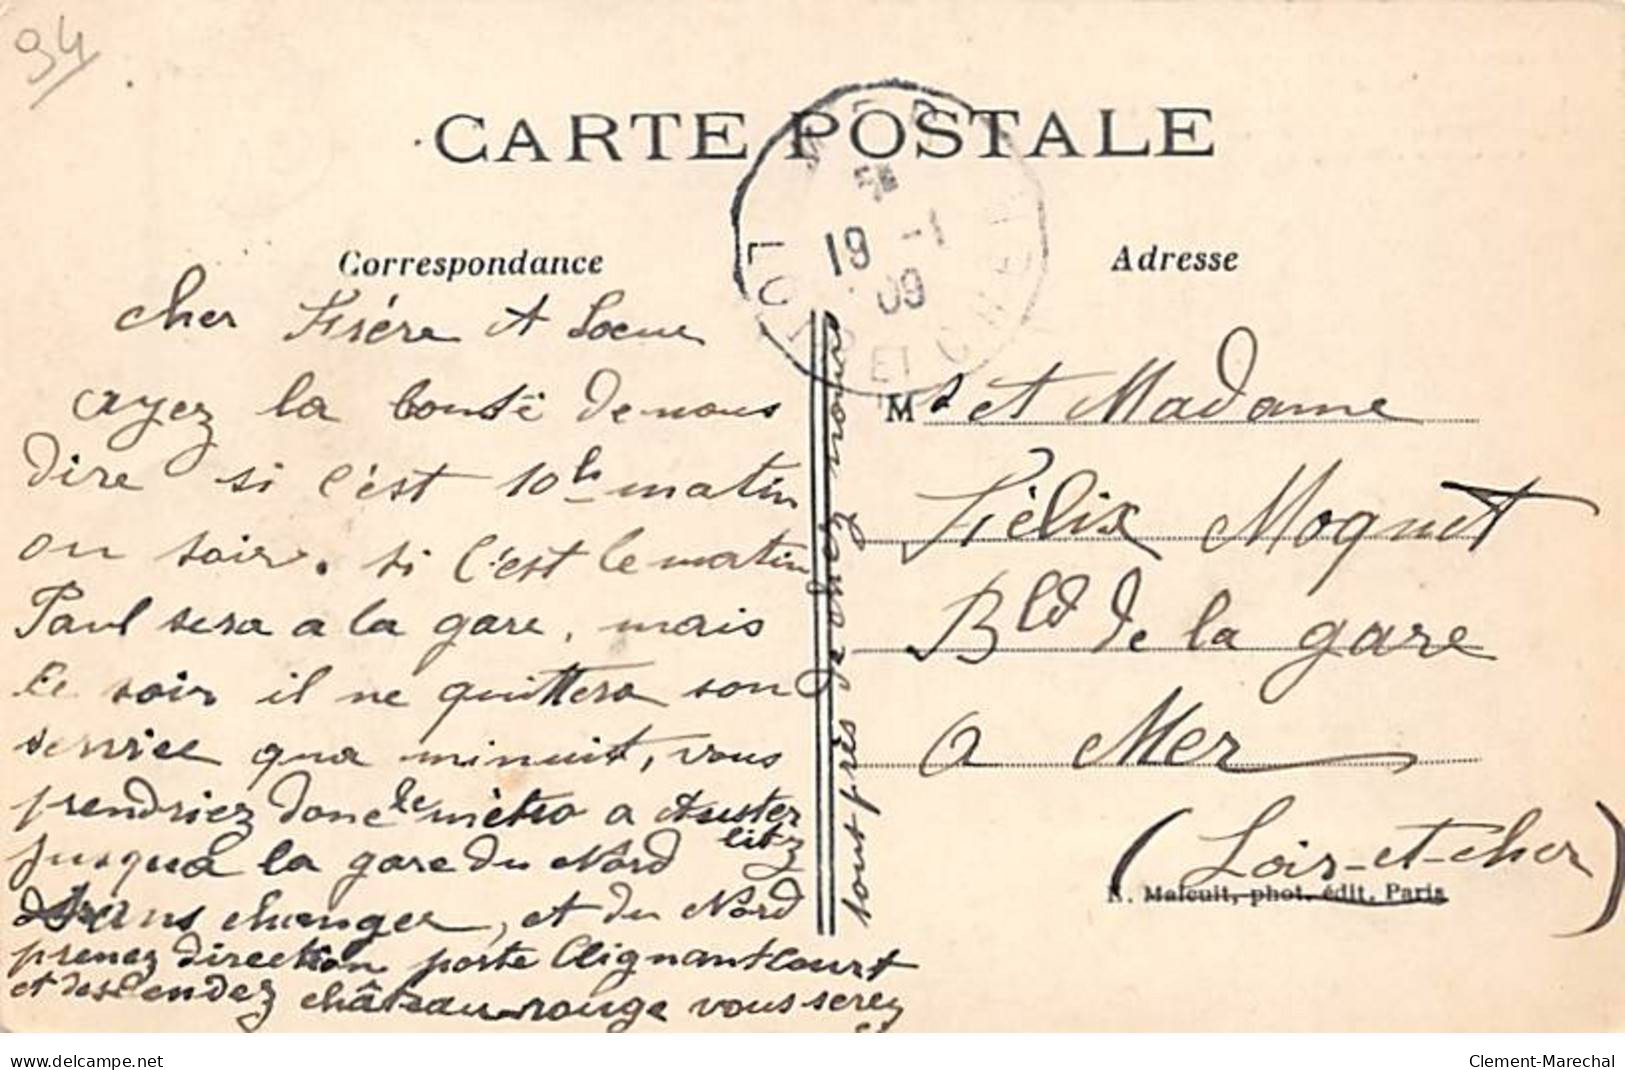 94
CARTE POSTALE
MER
5E
19 -1
09
LOIR ET CHER
Correspondance
Adresse
cher Frére et Soeur
ayez la bonté de nous
dire si c'est 10h matin
ou soir. si c'est le matin
Paul sera a la gare, mais
le soir il ne quittera son
service qua minuit, vous
prendriez donc le métro a Auster
litz
jusqua la gare du Nord
sans changer, et du Nord
prenez direction porte Clignantcourt
et descendez château-rouge vous serez
tout près de chez nous
Mr et Madame
Félix Moquet
Bld de la gare
a Mer
(Loir-et-cher)
N. Malcuit, phot. édit. Paris
www.delcampe.net
Clement-Marechal